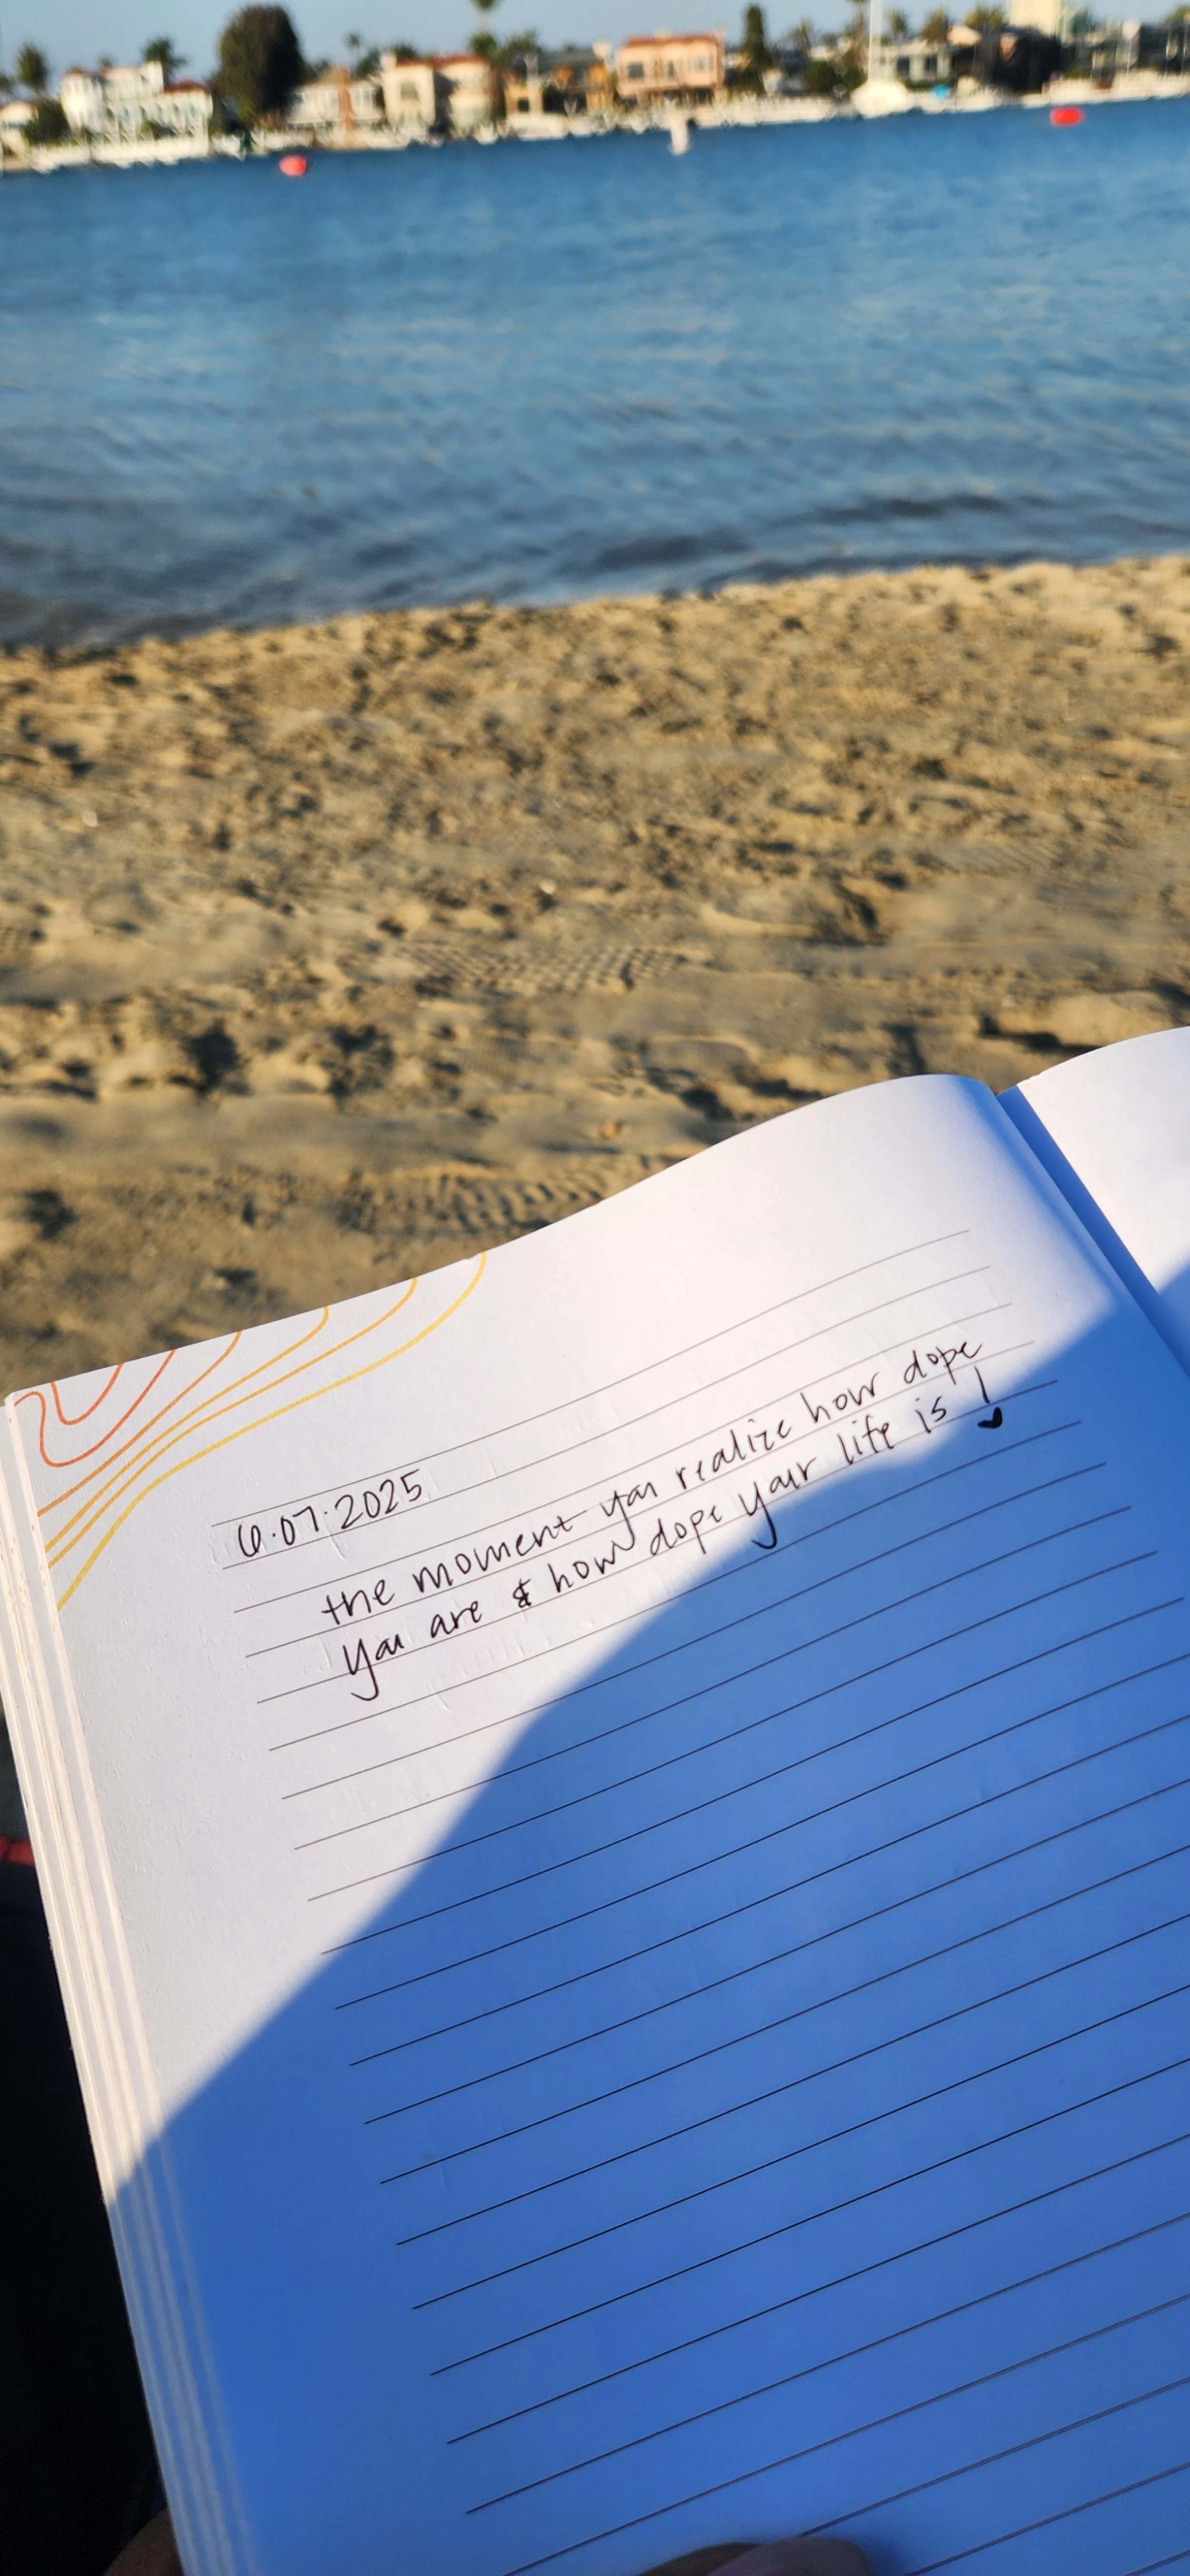 6.07.2025
the moment you realize how dope
you are & how dope your life is!